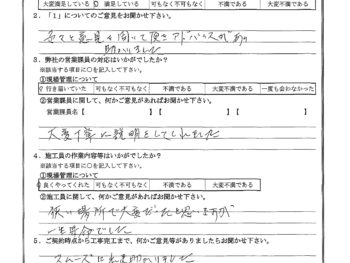 大変満足している 満足している 可もなく不可もなく 不満である 大変不満である
2．「1」についてのご意見をお聞かせ下さい。
色々と意見を聞いて頂きアドバイスがあり
助かりました
3．弊社の営業課員の対応はいかがでしたか？
※該当する項目に○を記入して下さい。
①現場管理について
行き届いていた 可もなく不可もなく 不満である 大変不満である 一度も会わなかった
②営業課員に関して、何かご意見があればお聞かせ下さい。
営業課員名【 】【 】【 】
大変丁寧に説明をしてくれました
4．施工員の作業内容等はいかがでしたか？
※該当する項目に○を記入して下さい。
①現場管理について
良くやってくれた 可もなく不可もなく 不満である 大変不満である
②施工員に関して、何かご意見があればお聞かせ下さい。
狭い場所で大変だったと思いますが
一生懸命でした
5．ご契約時点から工事完工まで、何かご意見等がありましたらお聞かせ下さい。
スムーズに出来助かりました